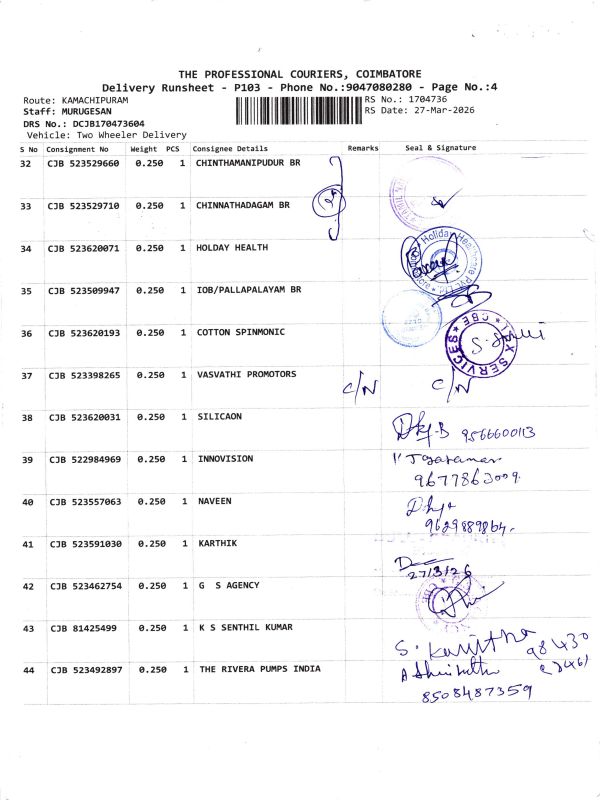 THE PROFESSIONAL COURIERS, COIMBATORE
Delivery Runsheet - P103 - Phone No.:9047080280 - Page No.:4
Route: KAMACHIPURAM RS No.: 1704736
Staff: MURUGESAN RS Date: 27-Mar-2026
DRS No.: DCJB170473604
Vehicle: Two Wheeler Delivery
S No Consignment No Weight PCS Consignee Details Remarks Seal & Signature
32 CJB 523529660 0.250 1 CHINTHAMANIPUDUR BR
33 CJB 523529710 0.250 1 CHINNATHADAGAM BR
34 CJB 523620071 0.250 1 HOLDAY HEALTH
35 CJB 523509947 0.250 1 IOB/PALLAPALAYAM BR
36 CJB 523620193 0.250 1 COTTON SPINMONIC
37 CJB 523398265 0.250 1 VASVATHI PROMOTORS C/N C/N
38 CJB 523620031 0.250 1 SILICAON 9566600113
39 CJB 522984969 0.250 1 INNOVISION
9677863009.
40 CJB 523557063 0.250 1 NAVEEN
9629889864.
41 CJB 523591030 0.250 1 KARTHIK
27/3/26
42 CJB 523462754 0.250 1 G S AGENCY
43 CJB 81425499 0.250 1 K S SENTHIL KUMAR
98430
44 CJB 523492897 0.250 1 THE RIVERA PUMPS INDIA
8508487359